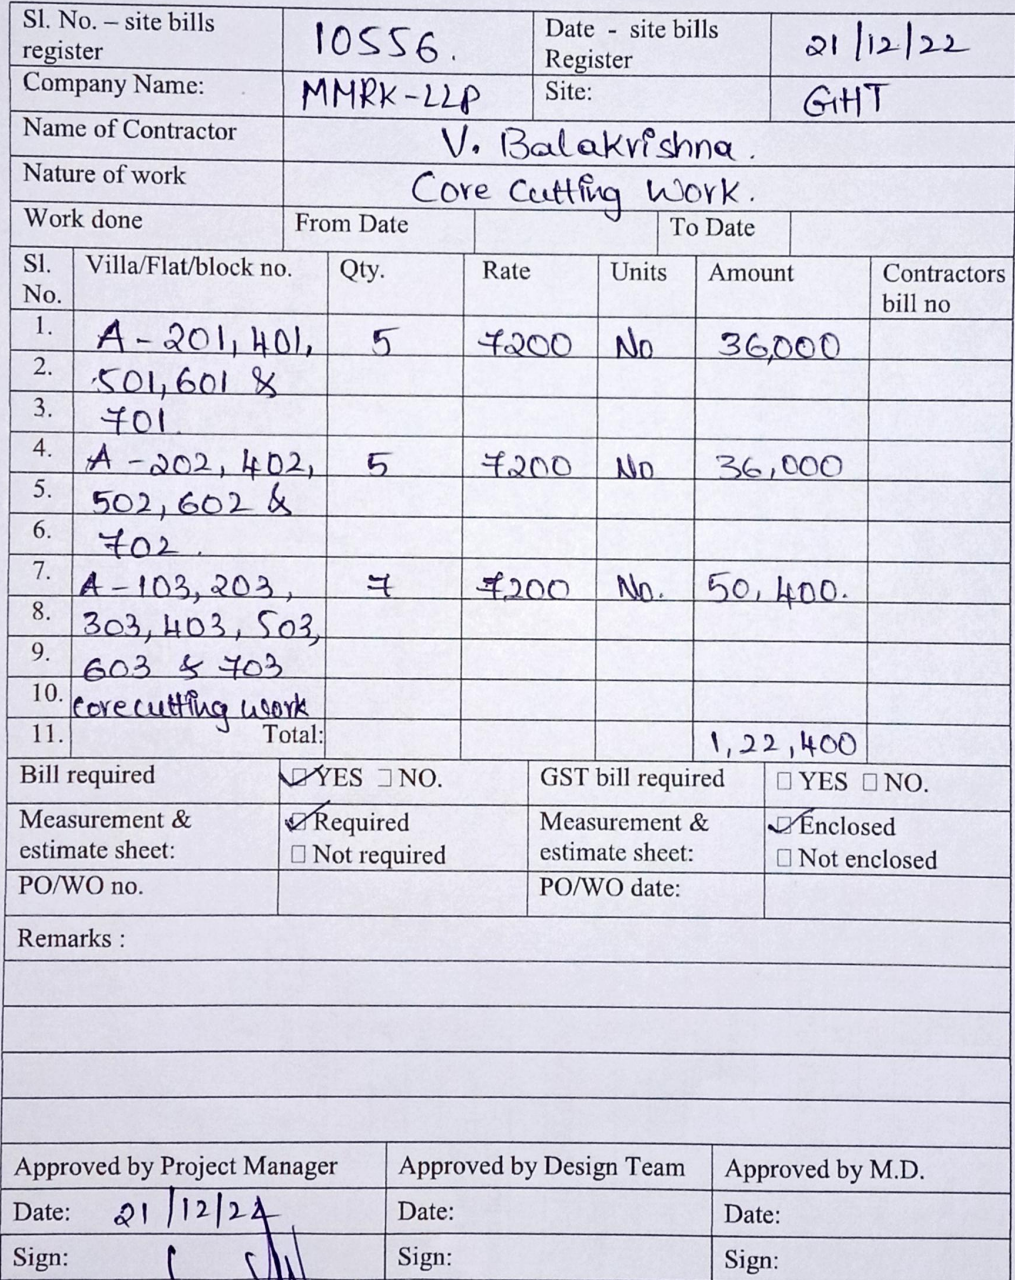 Sl. No. – site bills register 10556. Date - site bills Register 21/12/22
Company Name: MMRK-LLP Site: GHT
Name of Contractor V. Balakrishna.
Nature of work Core Cutting Work.
Work done From Date To Date
Sl. No. Villa/Flat/block no. Qty. Rate Units Amount Contractors bill no
1. A-201,401, 5 7200 No 36,000
2. 501,601 &
3. 701.
4. A-202, 402, 5 7200 No 36,000
5. 502,602 &
6. 702.
7. A-103,203, 7 7200 No. 50,400.
8. 303,403,503,
9. 603 & 703
10. core cutting work
11. Total: 1,22,400
Bill required YES NO. GST bill required YES NO.
Measurement & estimate sheet: Required Not required Measurement & estimate sheet: Enclosed Not enclosed
PO/WO no. PO/WO date:
Remarks :
Approved by Project Manager Approved by Design Team Approved by M.D.
Date: 21/12/22 Date: Date:
Sign: Sign: Sign: